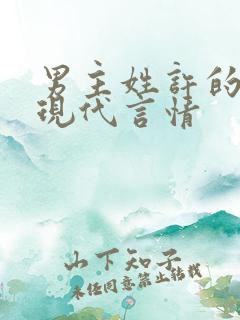 男主姓許的
現代言情
山下知子
未经同意禁止转载